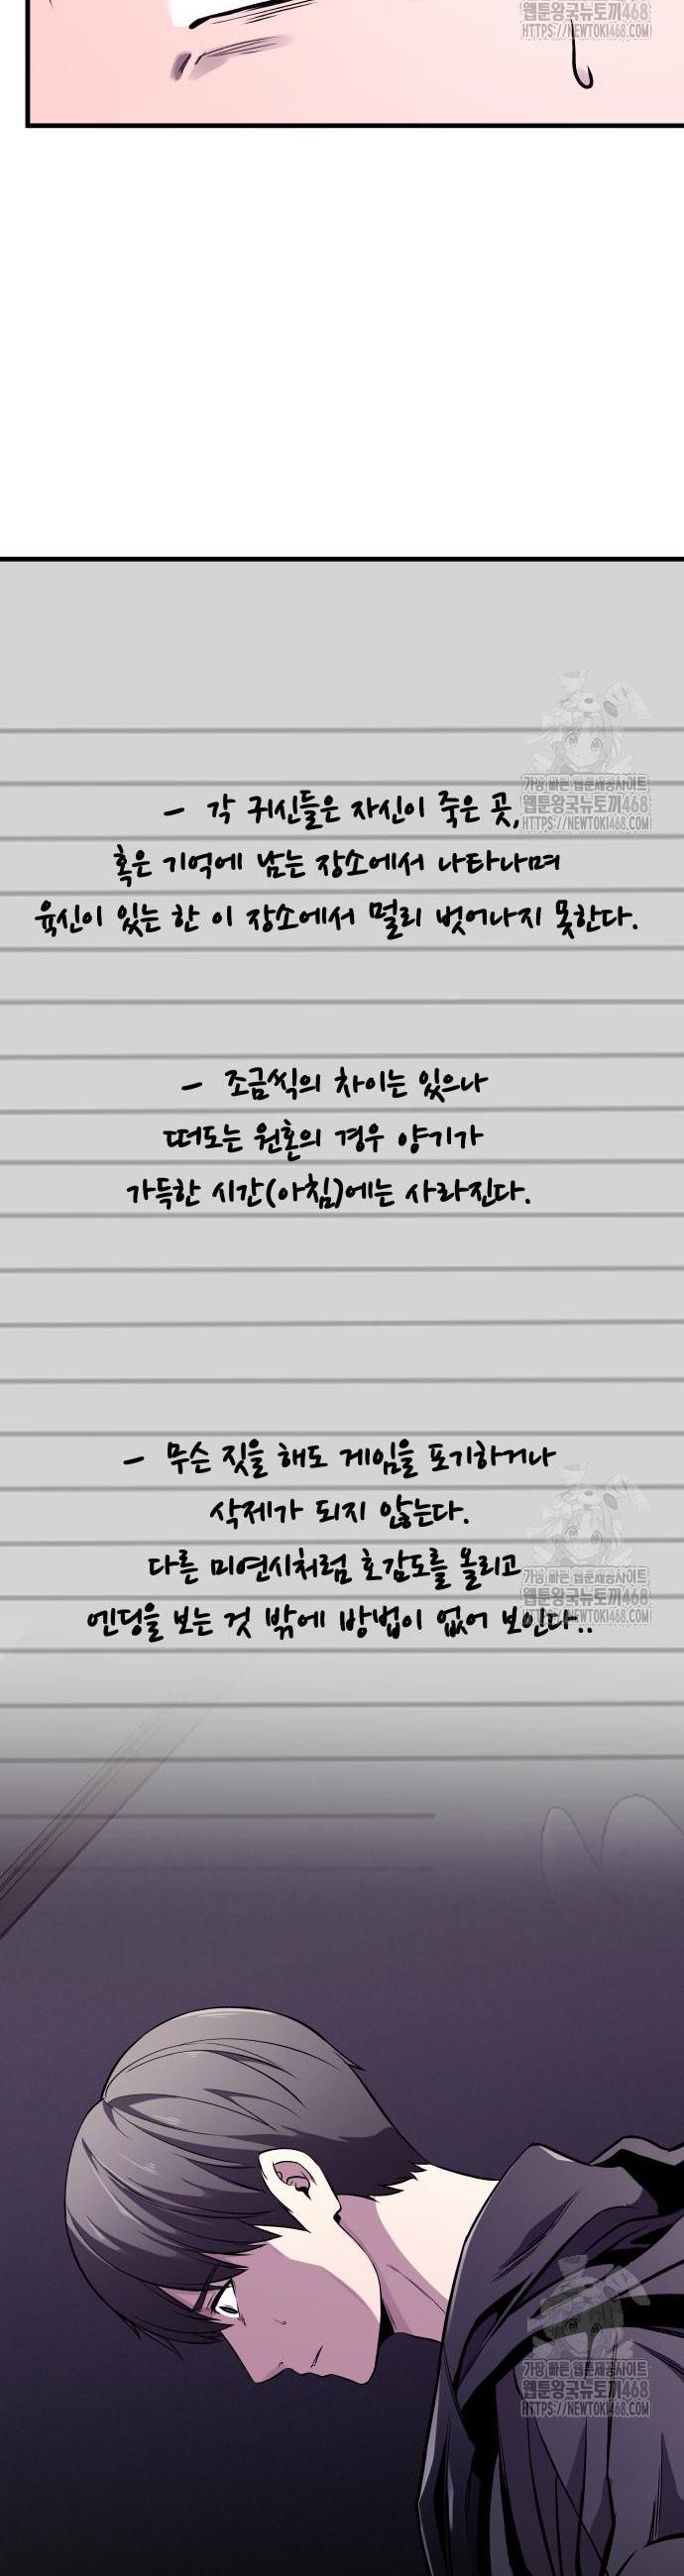 웹툰왕국뉴토끼468
HTTPS://NEWTOKI468.COM
가장 빠른 웹툰제공사이트
웹툰왕국뉴토끼468
HTTPS://NEWTOKI468.COM
- 각 귀신들은 자신이 죽은 곳,
혹은 기억에 남는 장소에서 나타나며
육신이 있는 한 이 장소에서 멀리 벗어나지 못한다.
- 조금씩의 차이는 있으나
떠도는 원혼의 경우 양기가
가득한 시간(아침)에는 사라진다.
- 무슨 짓을 해도 게임을 포기하거나
삭제가 되지 않는다.
다른 미연시처럼 호감도를 올리고
엔딩을 보는 것 밖에 방법이 없어 보인다..
가장 빠른 웹툰제공사이트
웹툰왕국뉴토끼468
HTTPS://NEWTOKI468.COM
가장 빠른 웹툰제공사이트
웹툰왕국뉴토끼468
HTTPS://NEWTOKI468.COM